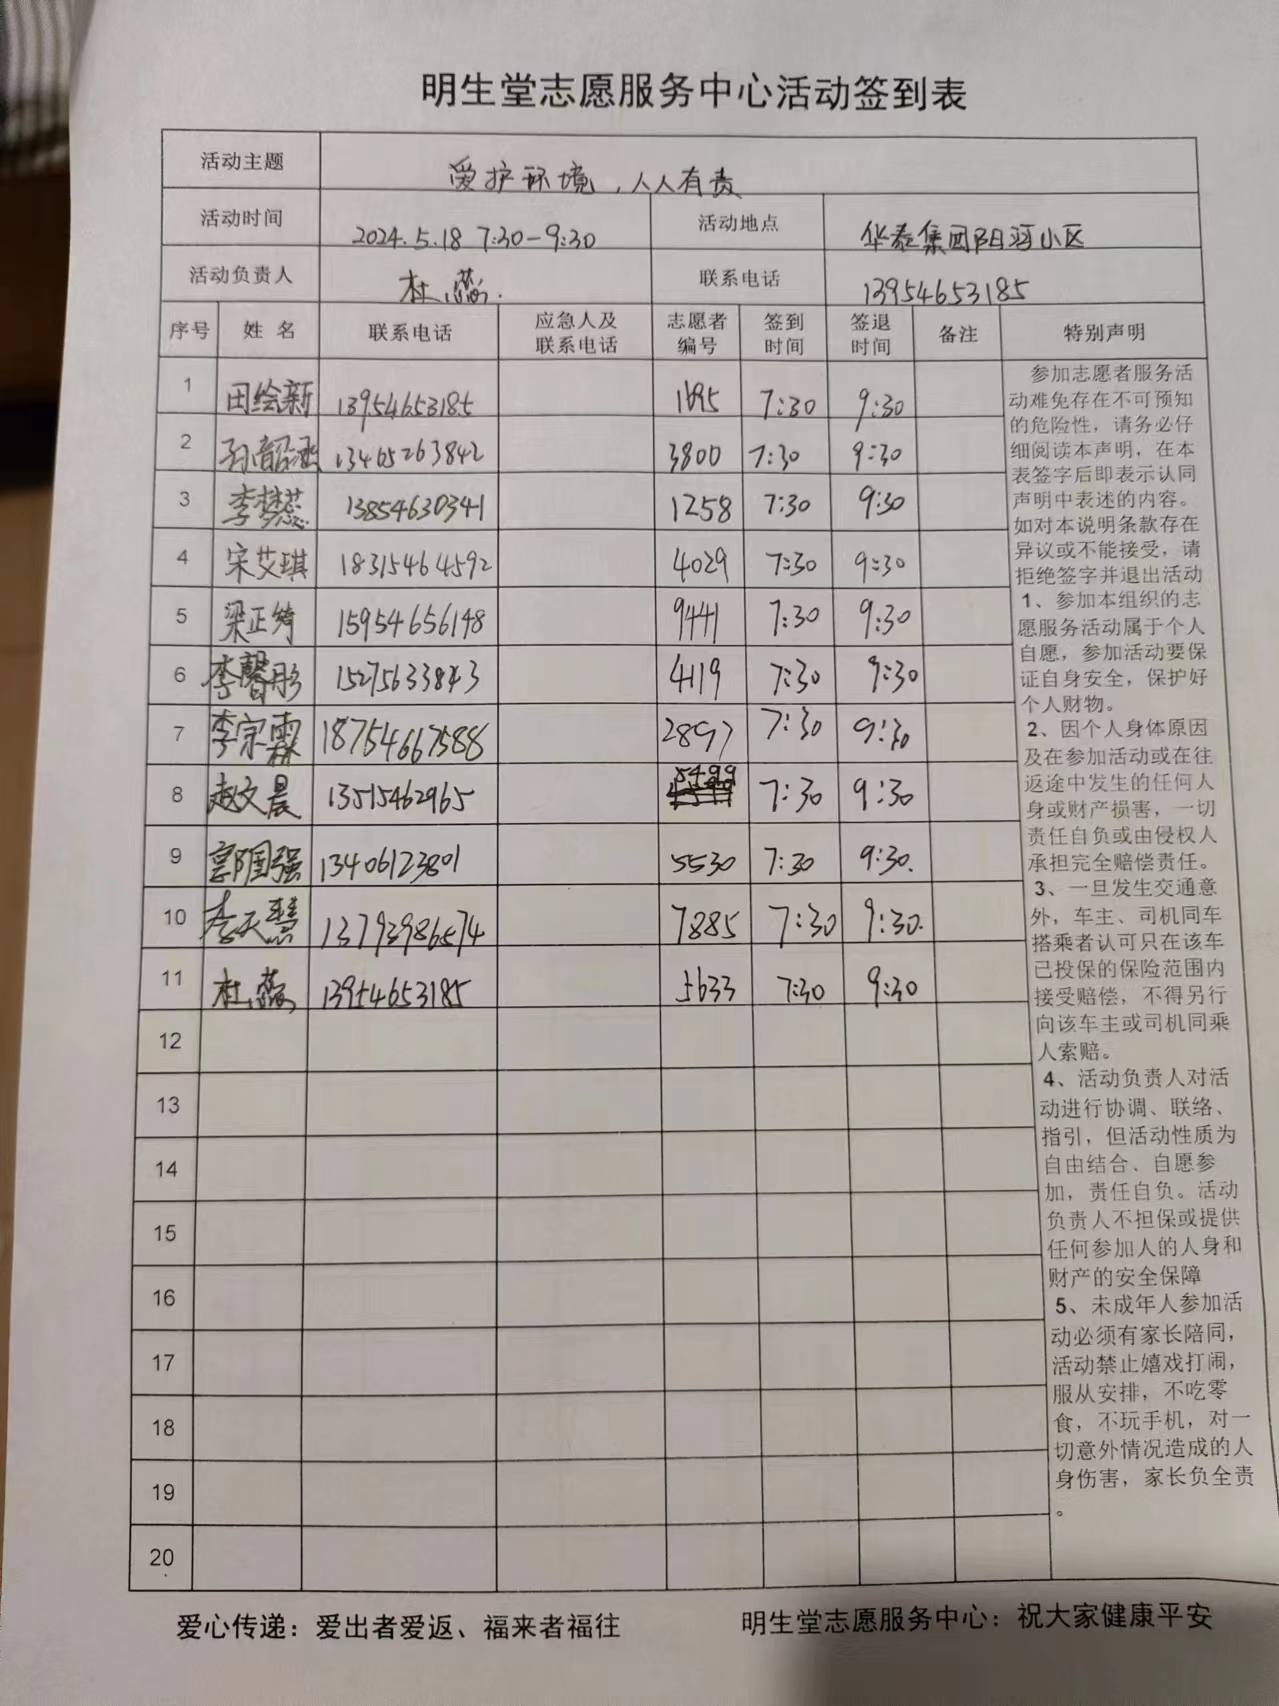 明生堂志愿服务中心活动签到表
活动主题 爱护环境，人人有责
活动时间 2024.5.18 7:30-9:30 活动地点 华泰集团阳河小区
活动负责人 杜蕊 联系电话 13954653185
序号 姓 名 联系电话 应急人及联系电话 志愿者编号 签到时间 签退时间 备注 特别声明
1 田绘新 13954653185 1695 7:30 9:30
2 孙韶涵 13465263842 3800 7:30 9:30
3 李梦蕊 13854630341 1258 7:30 9:30
4 宋艾琪 18315464592 4029 7:30 9:30
5 梁正绮 15954656148 9441 7:30 9:30
6 李馨彤 15275633843 4119 7:30 9:30
7 李宗霖 18754667588 2897 7:30 9:30
8 赵文晨 13515462965 5499 7:30 9:30
9 郭国强 13406123801 5530 7:30 9:30.
10 李天慧 13793986574 7885 7:30 9:30.
11 杜蕊 13954653185 5633 7:30 9:30
12
13
14
15
16
17
18
19
20
参加志愿者服务活
动难免存在不可预知
的危险性，请务必仔
细阅读本声明，在本
表签字后即表示认同
声明中表述的内容。
如对本说明条款存在
异议或不能接受，请
拒绝签字并退出活动
1、参加本组织的志
愿服务活动属于个人
自愿，参加活动要保
证自身安全，保护好
个人财物。
2、因个人身体原因
及在参加活动或在往
返途中发生的任何人
身或财产损害，一切
责任自负或由侵权人
承担完全赔偿责任。
3、一旦发生交通意
外，车主、司机同车
搭乘者认可只在该车
已投保的保险范围内
接受赔偿，不得另行
向该车主或司机同乘
人索赔。
4、活动负责人对活
动进行协调、联络、
指引，但活动性质为
自由结合、自愿参
加，责任自负。活动
负责人不担保或提供
任何参加人的人身和
财产的安全保障
5、未成年人参加活
动必须有家长陪同，
活动禁止嬉戏打闹，
服从安排，不吃零
食，不玩手机，对一
切意外情况造成的人
身伤害，家长负全责
。
爱心传递：爱出者爱返、福来者福往 明生堂志愿服务中心：祝大家健康平安